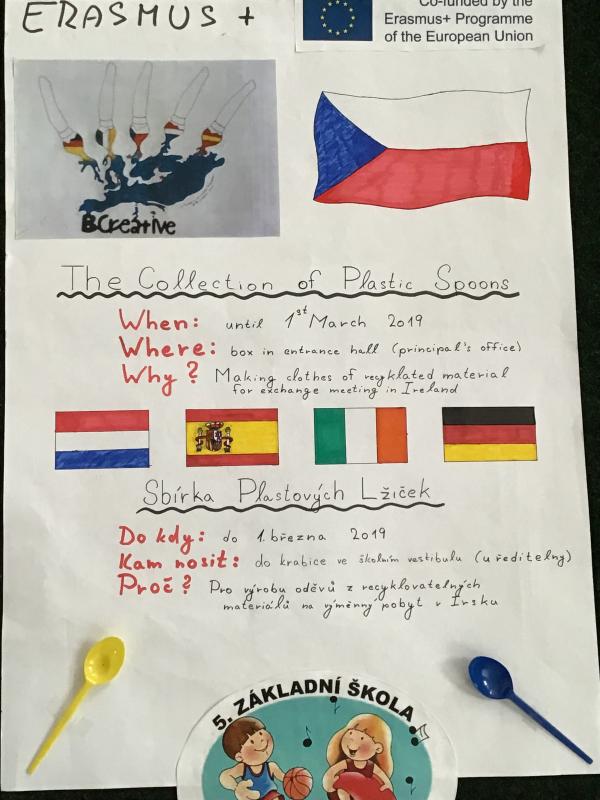 ERASMUS +
Co-funded by the
Erasmus+ Programme
of the European Union
BCreative
The Collection of Plastic Spoons
When: until 1st March 2019
Where: box in entrance hall (principal's office)
Why? Making clothes of recyklated material
for exchange meeting in Ireland
Sbírka Plastových Lžiček
Do kdy: do 1. března 2019
Kam nosit: do krabice ve školním vestibulu (u ředitelny)
Proč? Pro výrobu oděvů z recyklovatelných
materiálů na výměnný pobyt v Irsku
5. ZÁKLADNÍ ŠKOLA